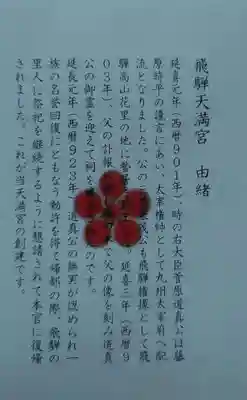 飛騨天満宮 由緒
延喜元年(西暦901年)、時の右大臣菅原道真公は藤
原時平の讒言にあい、太宰権帥として九州太宰府へ配
流となりました。公の三 茂公も飛騨権掾として飛
騨高山花里の地に謫居 延喜三年(西暦9
03年)、父の訃報 て父の像を刻み道真
公の御霊を迎えて祠を のです。
延長元年(西暦923年)、道真公の無実が認められ一
族の名誉回復にともなう勅許を得て帰郷の際、飛騨の
里人に祭祀を継続するように懇請されて本官に復帰
されました。これが当天満宮の創建です。